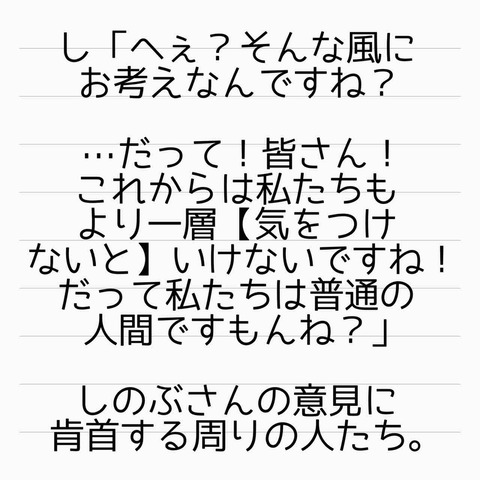 し「へぇ？そんな風に
お考えなんですね？
…だって！皆さん！
これからは私たちも
より一層【気をつけ
ないと】いけないですね！
だって私たちは普通の
人間ですもんね？」
しのぶさんの意見に
肯首する周りの人たち。